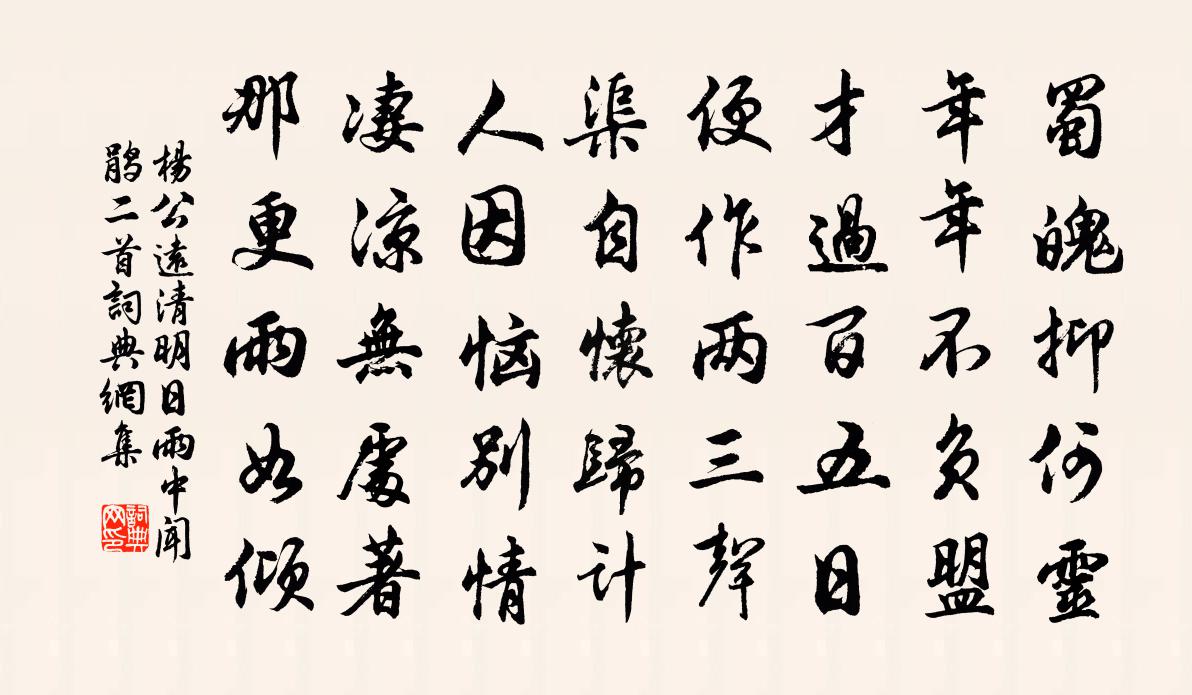 蜀魄抑何靈
年年不負盟
才過百五日
便作两三聲
渠自懷歸計
人因恼別情
凄凉無處著
那更雨如傾
楊公遠清明日雨中聞
鵑二首詞典網集
詞典网印